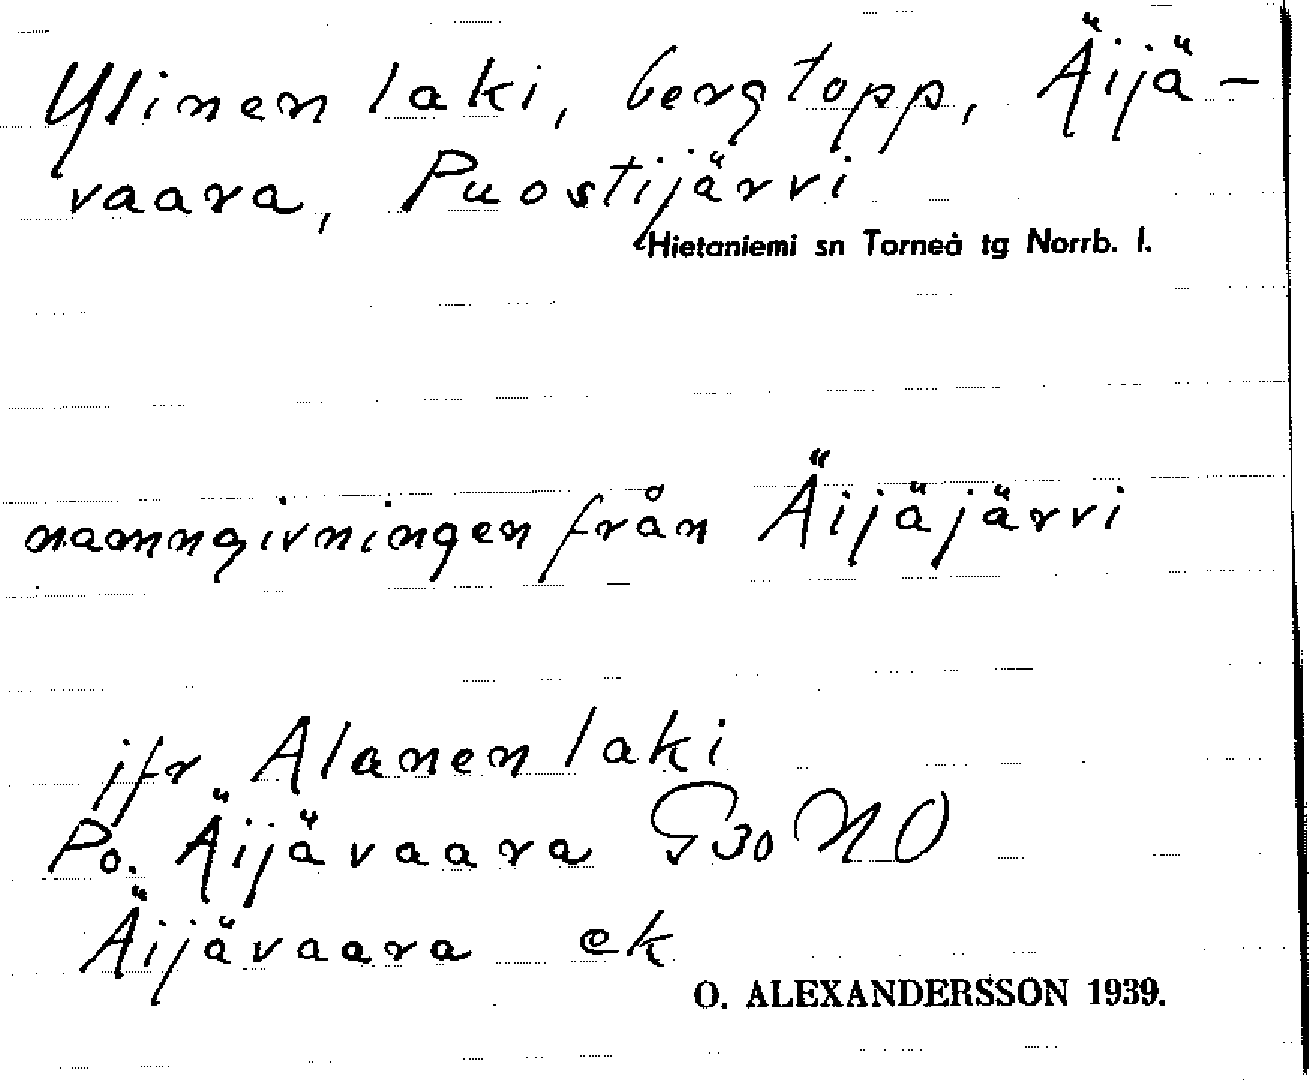 Ylinen laki, bergtopp, Äijä-
vaara, Puostijärvi
Hietaniemi sn Torneå tg Norrb. l.
namngivningen från Äijäjärvi
jfr Alanen laki
Po. Äijävaara G30 NO
Äijävaara ek
O. ALEXANDERSSON 1939.